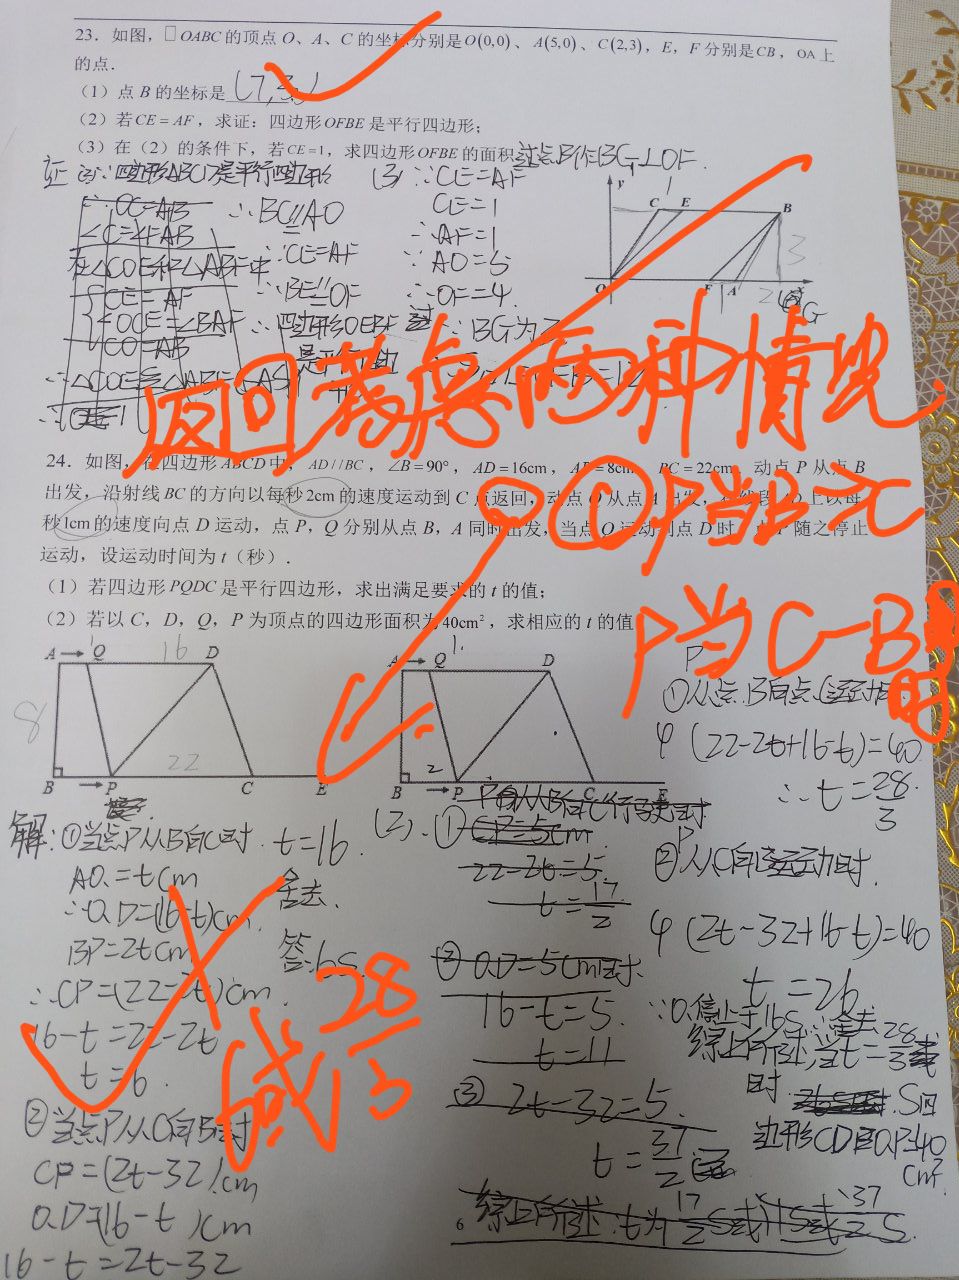 23. 如图，□OABC的顶点 O、A、C 的坐标分别是O(0,0)、A(5,0)、C(2,3)，E，F 分别是CB，OA上
的点.
(1) 点 B 的坐标是(7,3)
(2) 若CE=AF，求证：四边形OFBE是平行四边形；
(3) 在（2）的条件下，若CE=1，求四边形OFBE的面积 过点B作BG⊥OF.
证
∴OC=AB
∠C=∠FAB
CE=AF
∠OCE=∠BAF
CO=AB
∴BC∥AO
∵CE=AF
∴BE∥OF
∴四边形OEBF
是平行四边
(3) ∵CE=AF
CE=1
∴AF=1
∵AO=5
∴OF=4
∵BG为3
y
1
C E B
3
O F A
1 2 G
返回考虑两种情况.
24. 如图，在四边形ABCD中，AD//BC，∠B=90°，AD=16cm，AB=8cm，BC=22cm，动点 P 从点 B
出发，沿射线 BC 的方向以每秒2cm的速度运动到 C 点返回，动点 Q 从点 A 出发，在线段AD上以每
秒1cm的速度向点 D 运动，点 P，Q 分别从点 B，A 同时出发，当点 Q 运动到点 D 时，点 P 随之停止
运动，设运动时间为 t（秒）.
①P当B元
(1) 若四边形PQDC是平行四边形，求出满足要求的 t 的值；
(2) 若以 C，D，Q，P 为顶点的四边形面积为40cm²，求相应的 t 的值
P当C-B
时
A Q 16 D
8
22
B P C E
A Q 1. D
2
B P C E
解：①当点P从B向C时
AQ=tcm
∴QD=(16-t)cm
BP=2tcm
∴CP=(22-2t)cm
16-t=22-2t
t=6.
②当点P从C向B时
CP=(2t-32)cm
QD=(16-t)cm
16-t=2t-32
t=16
舍去.
答:6s
减28/3
(2).①CP=5cm
22-2t=5
t=17/2
②QD=5cm时
16-t=5.
t=11
③ 2t-32=5.
t=37/2
综上所述:t为17/2S或11S或37/2S.
P
①从点B向点C运动时.
4(22-2t+16-t)=40
∴t=28/3
P
②从C向B运动时.
4(2t-32+16-t)=40
t=26
∵Q停止于16s ∴舍去
综上所述,当t=28/3
时 S四
边形CDQP=40
cm²
6